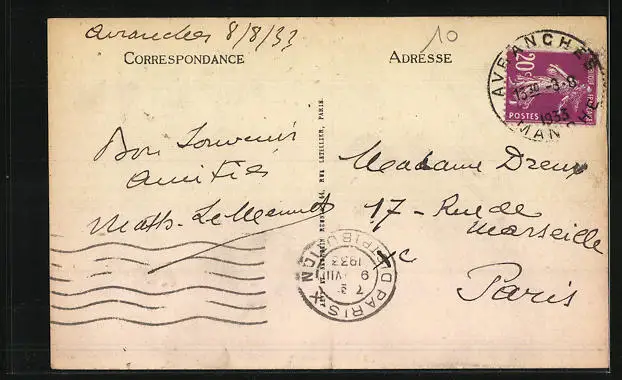 Avranches 8/8/33
10
CORRESPONDANCE
ADRESSE
AVRANCHES
13 30 -8-8
1933
MANCHE
20c
POSTES
Bon Souvenir
Amitiés
Math. Le Mennet
LETELLIER, PARIS.
Madame Dreux
17 - Rue de
Marseille
Xe
Paris
PARIS X
DISTRIBUTION
7
9 VIII
1933